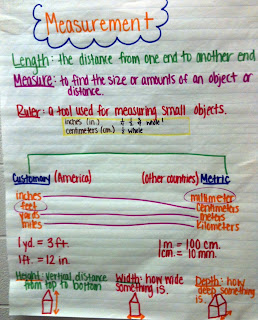 Measurement
Length: the distance from one end to another end
Measure: to find the size or amounts of an object or
distance.
Ruler: a tool used for measuring small objects.
inches (in.) ¼ ½ ¾ whole!
centimeters (cm.) ½ whole
Customary (America) (other countries) Metric
inches millimeter
feet Centimeters
yards meters
miles kilometers
1 yd. = 3 ft. 1 m = 100 cm.
1 ft. = 12 in. 1 cm. = 10 mm.
Height: vertical distance
from top to bottom
Width: how wide
something is.
Depth: how
deep something
is.